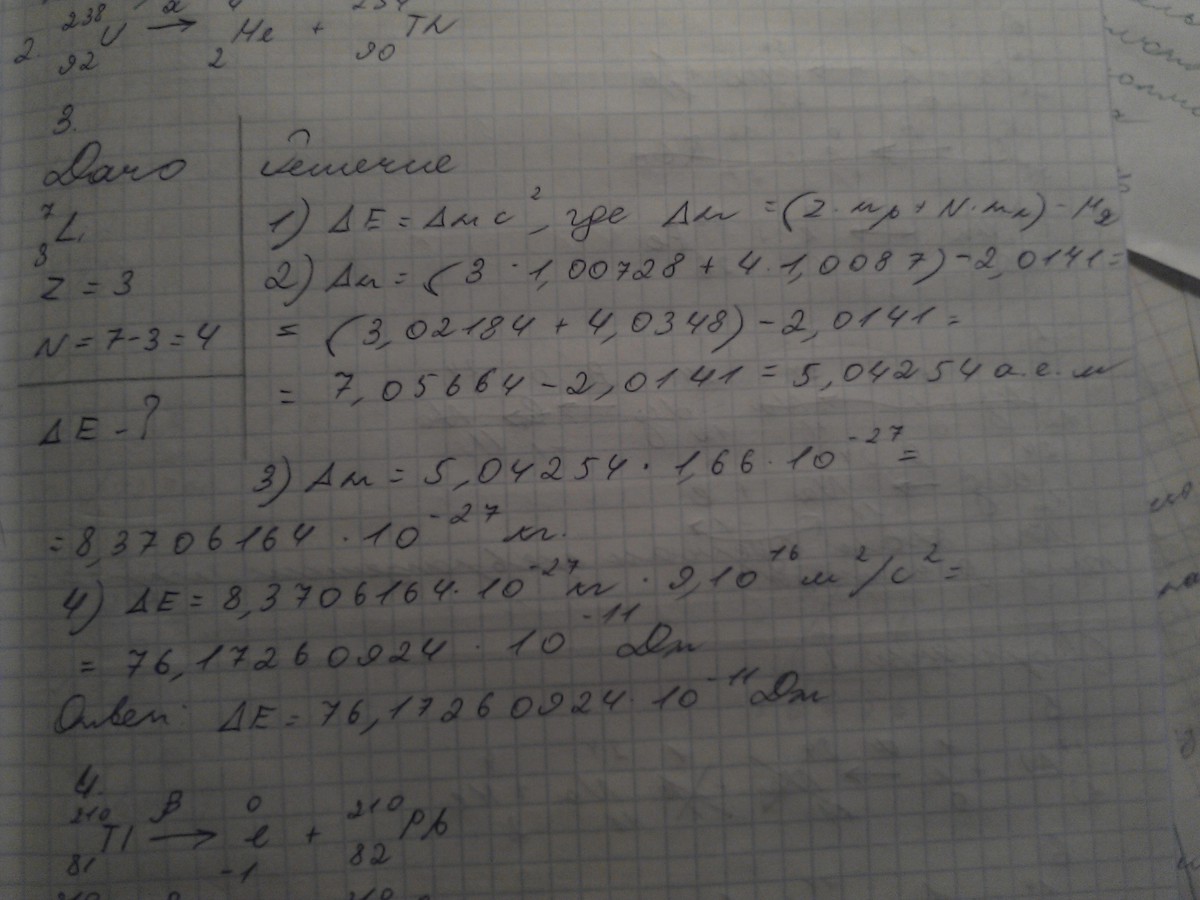 2. ²³⁸₉₂U →^α ⁴₂He + ²³⁴₉₀TN
3.
Дано
Решение
⁷₃Li
Z = 3
N = 7-3 = 4
ΔE - ?
1) ΔE = Δmc², где Δm = (Z·mp + N·mn) - Mя
2) Δm = (3 · 1,00728 + 4 · 1,0087) - 2,0141 =
= (3,02184 + 4,0348) - 2,0141 =
= 7,05664 - 2,0141 = 5,04254 а.е.м
3) Δm = 5,04254 · 1,66 · 10⁻²⁷ =
= 8,3706164 · 10⁻²⁷ кг.
4) ΔE = 8,3706164 · 10⁻²⁷ кг · 9,10¹⁶ м²/с² =
= 76,17260924 · 10⁻¹¹ Дж
Ответ: ΔE = 76,17260924 · 10⁻¹¹ Дж
4.
²¹⁰₈₁Tl →^β ⁰₋₁e + ²¹⁰₈₂Pb